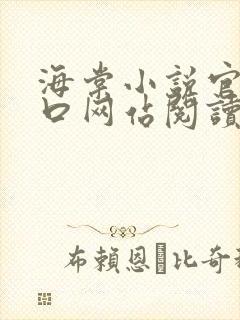 海棠小説官
口网估閱讀
布賴恩·比奇